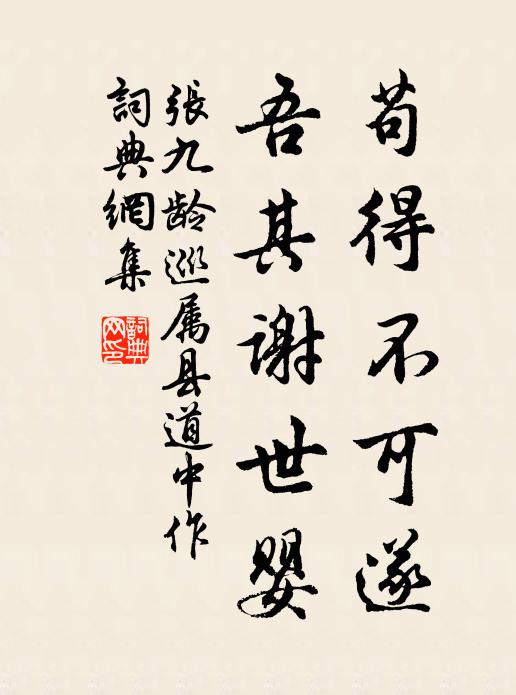 苟得不可遂
吾其谢世婴
張九龄巡属县道中作
詞典網集
詞典网印